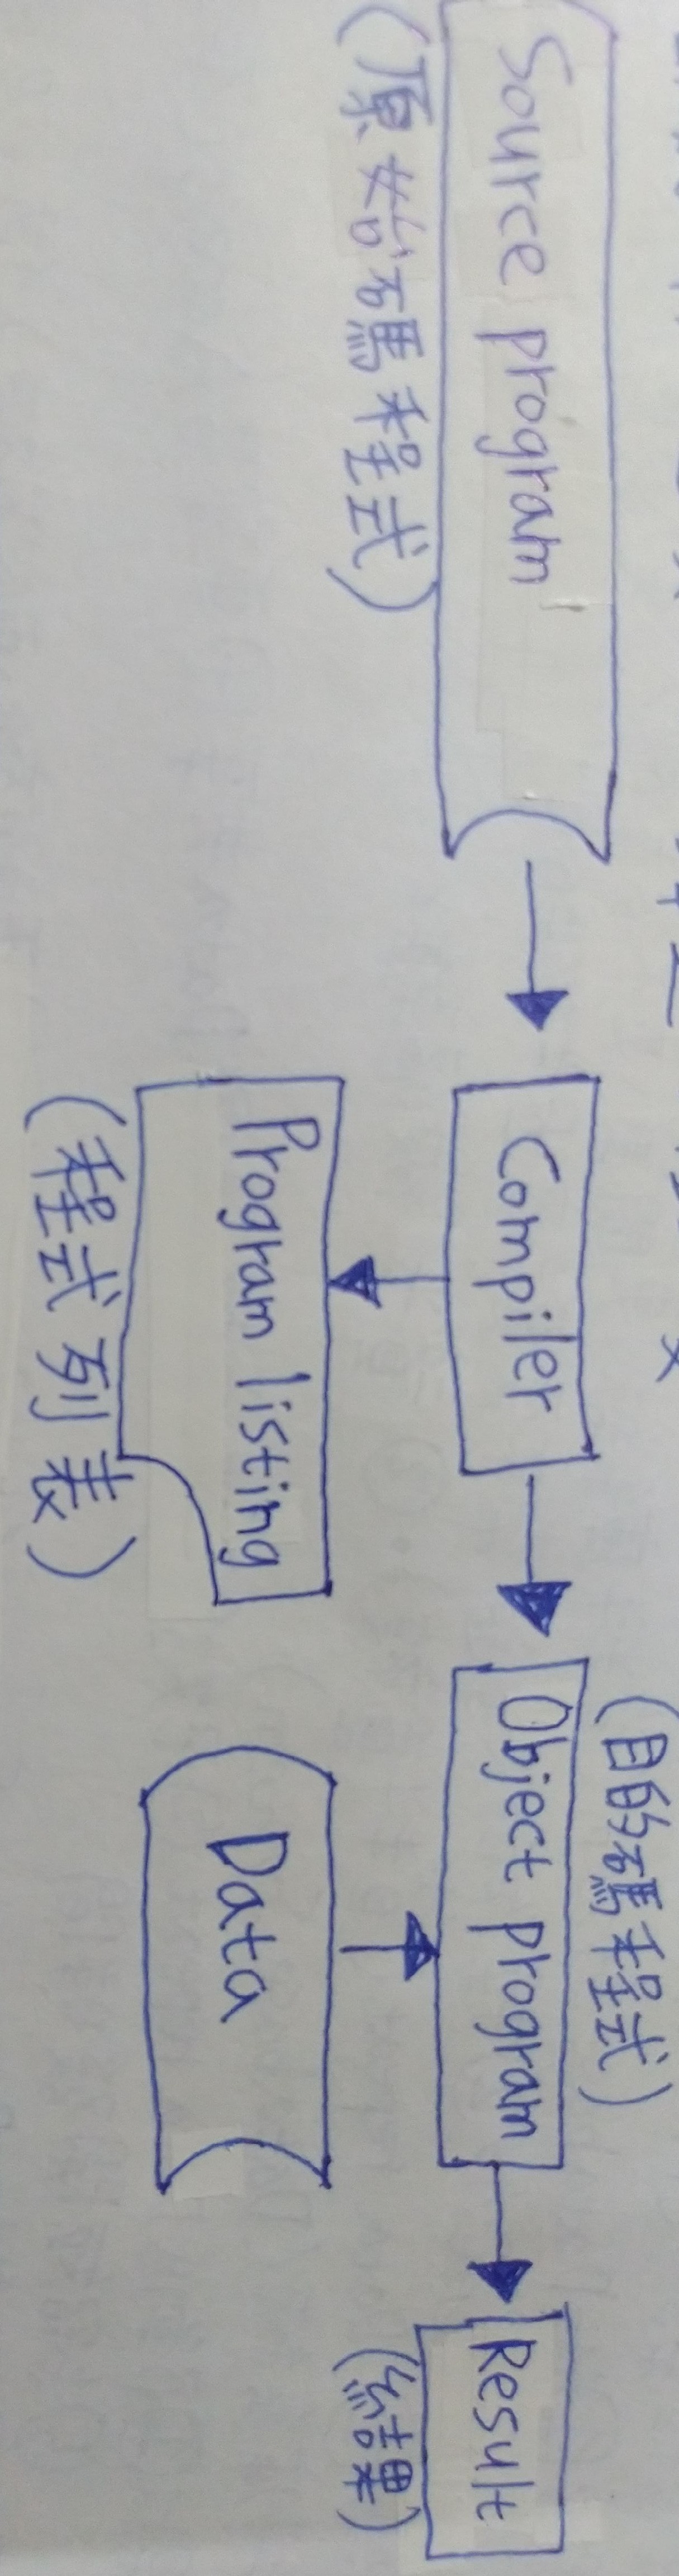 Source program
(原始碼程式)
Compiler
Program listing
(程式列表)
(目的碼程式)
Object program
Data
Result
(結果)